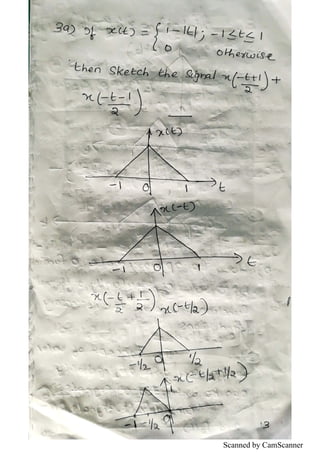 3a) If x(t) = { 1-|t| ; -1≤t≤1
0 otherwise
then sketch the signal x(-t+1/2) +
x(-t-1/2)
x(t)
-1 0 1 t
x(-t)
-1 0 1 t
x(-t/2 + 1/2) x(-t/2)
-1/2 0 1/2
x(-t/2+1/2)
1
-1 -1/2
13
Scanned by CamScanner